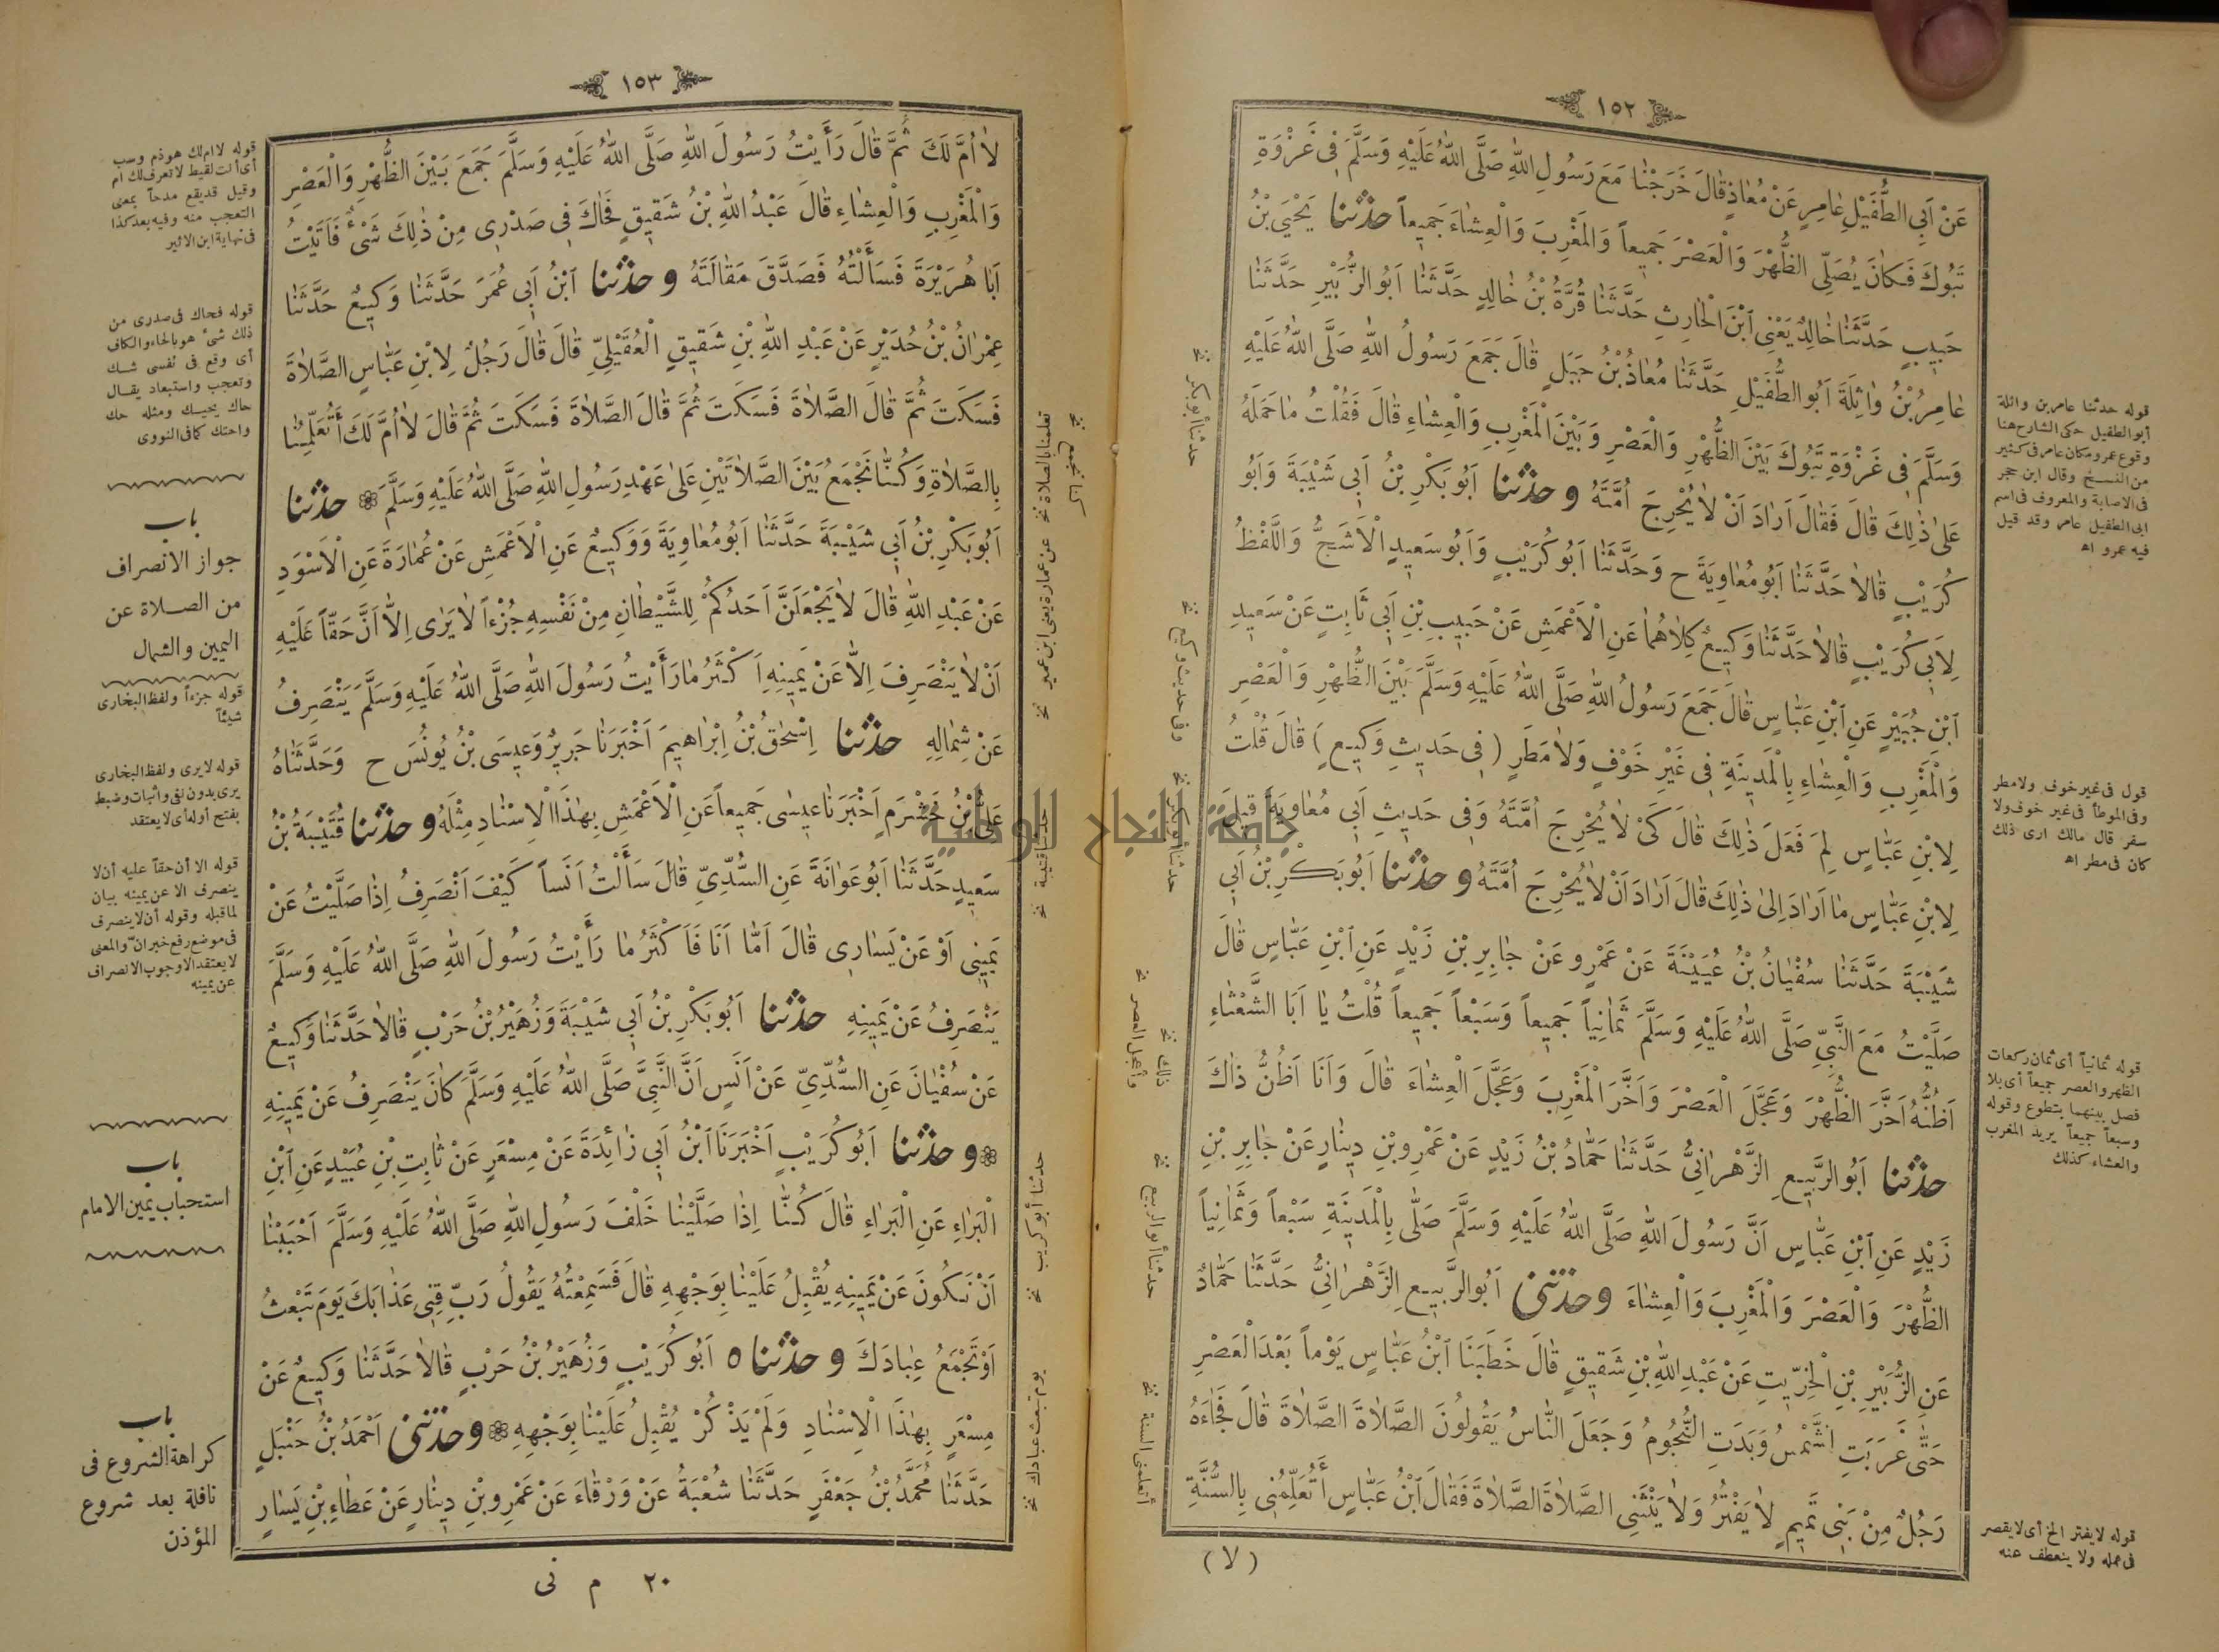 ١٥٢
عَنْ اَبِى الطُّفَيْلِ عَامِرٍ عَنْ مُعَاذٍ قَالَ خَرَجْنَا مَعَ رَسُولِ اللهِ صَلَّى اللهُ عَلَيْهِ وَسَلَّمَ فِى غَزْوَةِ
تَبُوكَ فَكَانَ يُصَلِّى الظُّهْرَ وَالْعَصْرَ جَمِيعاً وَالْمَغْرِبَ وَالْعِشَاءَ جَمِيعاً حدثنا يَحْيَى بْنُ
حَبِيبٍ حَدَّثَنَا خَالِدٌ يَعْنِى ابْنَ الْحَارِثِ حَدَّثَنَا قُرَّةُ بْنُ خَالِدٍ حَدَّثَنَا اَبُو الزُّبَيْرِ حَدَّثَنَا
عَامِرُ بْنُ وَاثِلَةَ اَبُو الطُّفَيْلِ حَدَّثَنَا مُعَاذُ بْنُ جَبَلٍ قَالَ جَمَعَ رَسُولُ اللهِ صَلَّى اللهُ عَلَيْهِ
وَسَلَّمَ فِى غَزْوَةِ تَبُوكَ بَيْنَ الظُّهْرِ وَالْعَصْرِ وَبَيْنَ الْمَغْرِبِ وَالْعِشَاءِ قَالَ فَقُلْتُ مَا حَمَلَهُ
عَلَى ذٰلِكَ قَالَ فَقَالَ اَرَادَ اَنْ لَا يُحْرِجَ اُمَّتَهُ و حدثنا اَبُو بَكْرِ بْنُ اَبِى شَيْبَةَ وَاَبُو
كُرَيْبٍ قَالَا حَدَّثَنَا اَبُو مُعَاوِيَةَ ح وَحَدَّثَنَا اَبُو كُرَيْبٍ وَاَبُو سَعِيدٍ الْاَشَجُّ وَاللَّفْظُ
لِاَبِى كُرَيْبٍ قَالَا حَدَّثَنَا وَكِيعٌ كِلَاهُمَا عَنِ الْاَعْمَشِ عَنْ حَبِيبِ بْنِ اَبِى ثَابِتٍ عَنْ سَعِيدِ
ابْنِ جُبَيْرٍ عَنِ ابْنِ عَبَّاسٍ قَالَ جَمَعَ رَسُولُ اللهِ صَلَّى اللهُ عَلَيْهِ وَسَلَّمَ بَيْنَ الظُّهْرِ وَالْعَصْرِ
وَالْمَغْرِبِ وَالْعِشَاءِ بِالْمَدِينَةِ فِى غَيْرِ خَوْفٍ وَلَا مَطَرٍ (فِى حَدِيثِ وَكِيعٍ) قَالَ قُلْتُ
لِابْنِ عَبَّاسٍ لِمَ فَعَلَ ذٰلِكَ قَالَ كَىْ لَا يُحْرِجَ اُمَّتَهُ وَفِى حَدِيثِ اَبِى مُعَاوِيَةَ قِيلَ
لِابْنِ عَبَّاسٍ مَا اَرَادَ اِلَى ذٰلِكَ قَالَ اَرَادَ اَنْ لَا يُحْرِجَ اُمَّتَهُ و حدثنا اَبُو بَكْرِ بْنُ اَبِى
شَيْبَةَ حَدَّثَنَا سُفْيَانُ بْنُ عُيَيْنَةَ عَنْ عَمْرٍو عَنْ جَابِرِ بْنِ زَيْدٍ عَنِ ابْنِ عَبَّاسٍ قَالَ
صَلَّيْتُ مَعَ النَّبِىِّ صَلَّى اللهُ عَلَيْهِ وَسَلَّمَ ثَمَانِياً جَمِيعاً وَسَبْعاً جَمِيعاً قُلْتُ يَا اَبَا الشَّعْثَاءِ
اَظُنُّهُ اَخَّرَ الظُّهْرَ وَعَجَّلَ الْعَصْرَ وَاَخَّرَ الْمَغْرِبَ وَعَجَّلَ الْعِشَاءَ قَالَ وَاَنَا اَظُنُّ ذَاكَ
حدثنا اَبُو الرَّبِيعِ الزَّهْرَانِىُّ حَدَّثَنَا حَمَّادُ بْنُ زَيْدٍ عَنْ عَمْرِو بْنِ دِينَارٍ عَنْ جَابِرِ بْنِ
زَيْدٍ عَنِ ابْنِ عَبَّاسٍ اَنَّ رَسُولَ اللهِ صَلَّى اللهُ عَلَيْهِ وَسَلَّمَ صَلَّى بِالْمَدِينَةِ سَبْعاً وَثَمَانِياً
الظُّهْرَ وَالْعَصْرَ وَالْمَغْرِبَ وَالْعِشَاءَ و حدثنى اَبُو الرَّبِيعِ الزَّهْرَانِىُّ حَدَّثَنَا حَمَّادٌ
عَنِ الزُّبَيْرِ بْنِ الْخِرِّيتِ عَنْ عَبْدِ اللهِ بْنِ شَقِيقٍ قَالَ خَطَبَنَا ابْنُ عَبَّاسٍ يَوْماً بَعْدَ الْعَصْرِ
حَتَّى غَرَبَتِ الشَّمْسُ وَبَدَتِ النُّجُومُ وَجَعَلَ النَّاسُ يَقُولُونَ الصَّلَاةَ الصَّلَاةَ قَالَ فَجَاءَهُ
رَجُلٌ مِنْ بَنِى تَمِيمٍ لَا يَفْتُرُ وَلَا يَنْثَنِى الصَّلَاةَ الصَّلَاةَ فَقَالَ ابْنُ عَبَّاسٍ أَتُعَلِّمُنِى بِالسُّنَّةِ
(لا)
قوله حدثنا عامر بن واثلة
أبو الطفيل حكى الشارح هنا
وقوع عمرو مكان عامر فى كثير
من النسخ وقال ابن حجر
فى الاصابة والمعروف فى اسم
ابى الطفيل عامر وقد قيل
فيه عمرو اه
قول فى غير خوف ولا مطر
وفى الموطأ فى غير خوف ولا
سفر قال مالك ارى ذلك
كان فى مطر اه
قوله ثمانياً أى ثمان ركعات
الظهر والعصر جميعاً أى بلا
فصل بينهما بتطوع وقوله
وسبعاً جميعاً يريد المغرب
والعشاء كذلك
قوله لا يفتر الخ أى لا يقصر
فى عمله ولا ينعطف عنه
حدثنا أبو بكر
وفى حديث وكيع
حدثنا أبو بكر
ذلك
وأعجل العصر
حدثنا أبو الربيع
أتعلمنى السنة
١٥٣
لَا اُمَّ لَكَ ثُمَّ قَالَ رَأَيْتُ رَسُولَ اللهِ صَلَّى اللهُ عَلَيْهِ وَسَلَّمَ جَمَعَ بَيْنَ الظُّهْرِ وَالْعَصْرِ
وَالْمَغْرِبِ وَالْعِشَاءِ قَالَ عَبْدُ اللهِ بْنُ شَقِيقٍ فَحَاكَ فِى صَدْرِى مِنْ ذٰلِكَ شَىْءٌ فَاَتَيْتُ
اَبَا هُرَيْرَةَ فَسَأَلْتُهُ فَصَدَّقَ مَقَالَتَهُ و حدثنا ابْنُ اَبِى عُمَرَ حَدَّثَنَا وَكِيعٌ حَدَّثَنَا
عِمْرَانُ بْنُ حُدَيْرٍ عَنْ عَبْدِ اللهِ بْنِ شَقِيقٍ الْعُقَيْلِىِّ قَالَ قَالَ رَجُلٌ لِابْنِ عَبَّاسٍ الصَّلَاةَ
فَسَكَتَ ثُمَّ قَالَ الصَّلَاةَ فَسَكَتَ ثُمَّ قَالَ الصَّلَاةَ فَسَكَتَ ثُمَّ قَالَ لَا اُمَّ لَكَ أَتُعَلِّمُنَا
بِالصَّلَاةِ وَكُنَّا نَجْمَعُ بَيْنَ الصَّلَاتَيْنِ عَلَى عَهْدِ رَسُولِ اللهِ صَلَّى اللهُ عَلَيْهِ وَسَلَّمَ ❁ حدثنا
اَبُو بَكْرِ بْنُ أَبِى شَيْبَةَ حَدَّثَنَا اَبُو مُعَاوِيَةَ وَوَكِيعٌ عَنِ الْاَعْمَشِ عَنْ عُمَارَةَ عَنِ الْاَسْوَدِ
عَنْ عَبْدِ اللهِ قَالَ لَا يَجْعَلَنَّ اَحَدُكُمْ لِلشَّيْطَانِ مِنْ نَفْسِهِ جُزْءاً لَا يَرَى اِلَّا اَنَّ حَقّاً عَلَيْهِ
اَنْ لَا يَنْصَرِفَ اِلَّا عَنْ يَمِينِهِ اَكْثَرُ مَا رَأَيْتُ رَسُولَ اللهِ صَلَّى اللهُ عَلَيْهِ وَسَلَّمَ يَنْصَرِفُ
عَنْ شِمَالِهِ حدثنا اِسْحٰقُ بْنُ اِبْرَاهِيمَ اَخْبَرَنَا جَرِيرٌ وَعِيسَى بْنُ يُونُسَ ح وَحَدَّثَنَاهُ
عَلِىُّ بْنُ خَشْرَمٍ اَخْبَرَنَا عِيسَى جَمِيعاً عَنِ الْاَعْمَشِ بِهٰذَا الْاِسْنَادِ مِثْلَهُ و حدثنا قُتَيْبَةُ بْنُ
سَعِيدٍ حَدَّثَنَا اَبُو عَوَانَةَ عَنِ السُّدِّىِّ قَالَ سَأَلْتُ اَنَساً كَيْفَ اَنْصَرِفُ اِذَا صَلَّيْتُ عَنْ
يَمِينِى اَوْ عَنْ يَسَارِى قَالَ اَمَّا اَنَا فَاَكْثَرُ مَا رَأَيْتُ رَسُولَ اللهِ صَلَّى اللهُ عَلَيْهِ وَسَلَّمَ
يَنْصَرِفُ عَنْ يَمِينِهِ حدثنا اَبُو بَكْرِ بْنُ اَبِى شَيْبَةَ وَزُهَيْرُ بْنُ حَرْبٍ قَالَا حَدَّثَنَا وَكِيعٌ
عَنْ سُفْيَانَ عَنِ السُّدِّىِّ عَنْ اَنَسٍ اَنَّ النَّبِىَّ صَلَّى اللهُ عَلَيْهِ وَسَلَّمَ كَانَ يَنْصَرِفُ عَنْ يَمِينِهِ
❁ و حدثنا اَبُو كُرَيْبٍ اَخْبَرَنَا ابْنُ اَبِى زَائِدَةَ عَنْ مِسْعَرٍ عَنْ ثَابِتِ بْنِ عُبَيْدٍ عَنِ ابْنِ
الْبَرَاءِ عَنِ الْبَرَاءِ قَالَ كُنَّا اِذَا صَلَّيْنَا خَلْفَ رَسُولِ اللهِ صَلَّى اللهُ عَلَيْهِ وَسَلَّمَ اَحْبَبْنَا
اَنْ نَكُونَ عَنْ يَمِينِهِ يُقْبِلُ عَلَيْنَا بِوَجْهِهِ قَالَ فَسَمِعْتُهُ يَقُولُ رَبِّ قِنِى عَذَابَكَ يَوْمَ تَبْعَثُ
اَوْ تَجْمَعُ عِبَادَكَ و حدثناه اَبُو كُرَيْبٍ وَزُهَيْرُ بْنُ حَرْبٍ قَالَا حَدَّثَنَا وَكِيعٌ عَنْ
مِسْعَرٍ بِهٰذَا الْاِسْنَادِ وَلَمْ يَذْكُرْ يُقْبِلُ عَلَيْنَا بِوَجْهِهِ ❁ و حدثنى اَحْمَدُ بْنُ حَنْبَلٍ
حَدَّثَنَا مُحَمَّدُ بْنُ جَعْفَرٍ حَدَّثَنَا شُعْبَةُ عَنْ وَرْقَاءَ عَنْ عَمْرِو بْنِ دِينَارٍ عَنْ عَطَاءِ بْنِ يَسَارٍ
٢٠ م نى
قوله لا ام لك هو ذم وسب
أى أنت لقيط لا تعرف لك ام
وقيل قد يقع مدحاً بمعنى
التعجب منه وفيه بعد كذا
فى نهاية ابن الاثير
قوله فحاك فى صدرى من
ذلك شىء هو بالحاء والكاف
أى وقع فى نفسى شك
وتعجب واستبعاد يقال
حاك يحيك ومثله حك
واحتك كما فى النووى
باب
جواز الانصراف
من الصلاة عن
اليمين والشمال
قوله جزءاً ولفظ البخارى
شيئاً
قوله لا يرى ولفظ البخارى
يرى بدون لفى واثبات وضبط
بفتح أوله أى لا يعتقد
قوله الا أن حقاً عليه أن لا
ينصرف الا عن يمينه بيان
لما قبله وقوله أن لا ينصرف
فى موضع رفع خبر انّ والمعنى
لا يعتقد الا وجوب الانصراف
عن يمينه
باب
استحباب يمين الامام
باب
كراهة الشروع فى
نافلة بعد شروع
المؤذن
تعلمنا بالصلاة
عن عمارة يعنى ابن عمير
حدثنا قتيبة
حدثنا أبو كريب
يوم تبعث عبادك
جامعة النجاح الوطنية